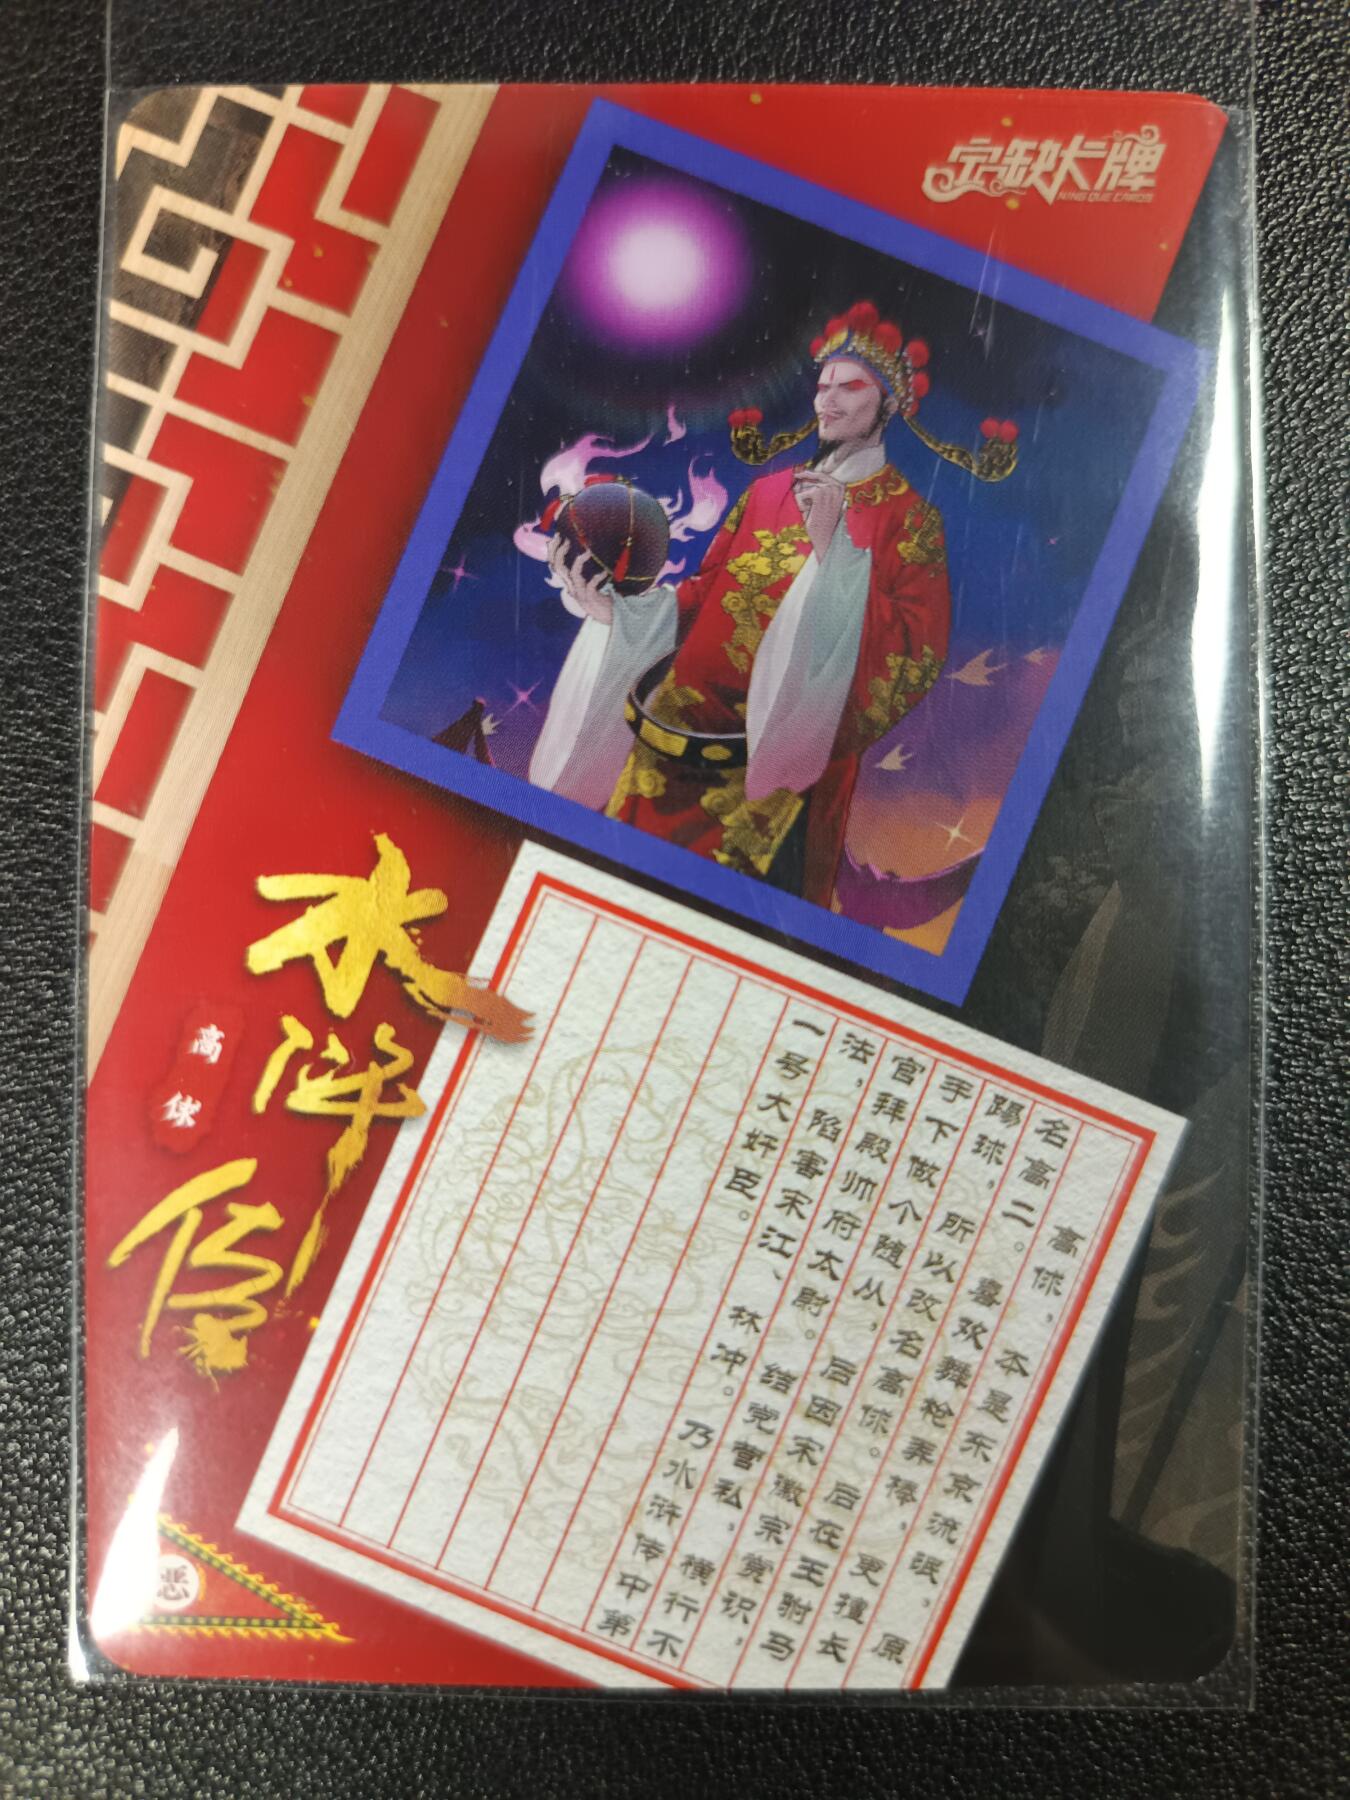 宁缺大牌
NING QUE CARDS
水浒传
高俅
高俅，本是东京流氓，原
名高二。喜欢舞枪弄棒，更擅长
踢球，所以改名高俅。后在王驸马
手下做个随从，后因宋徽宗赏识，
官拜殿帅府太尉。结党营私，横行不
法，陷害宋江、林冲。乃水浒传中第
一号大奸臣。
恶